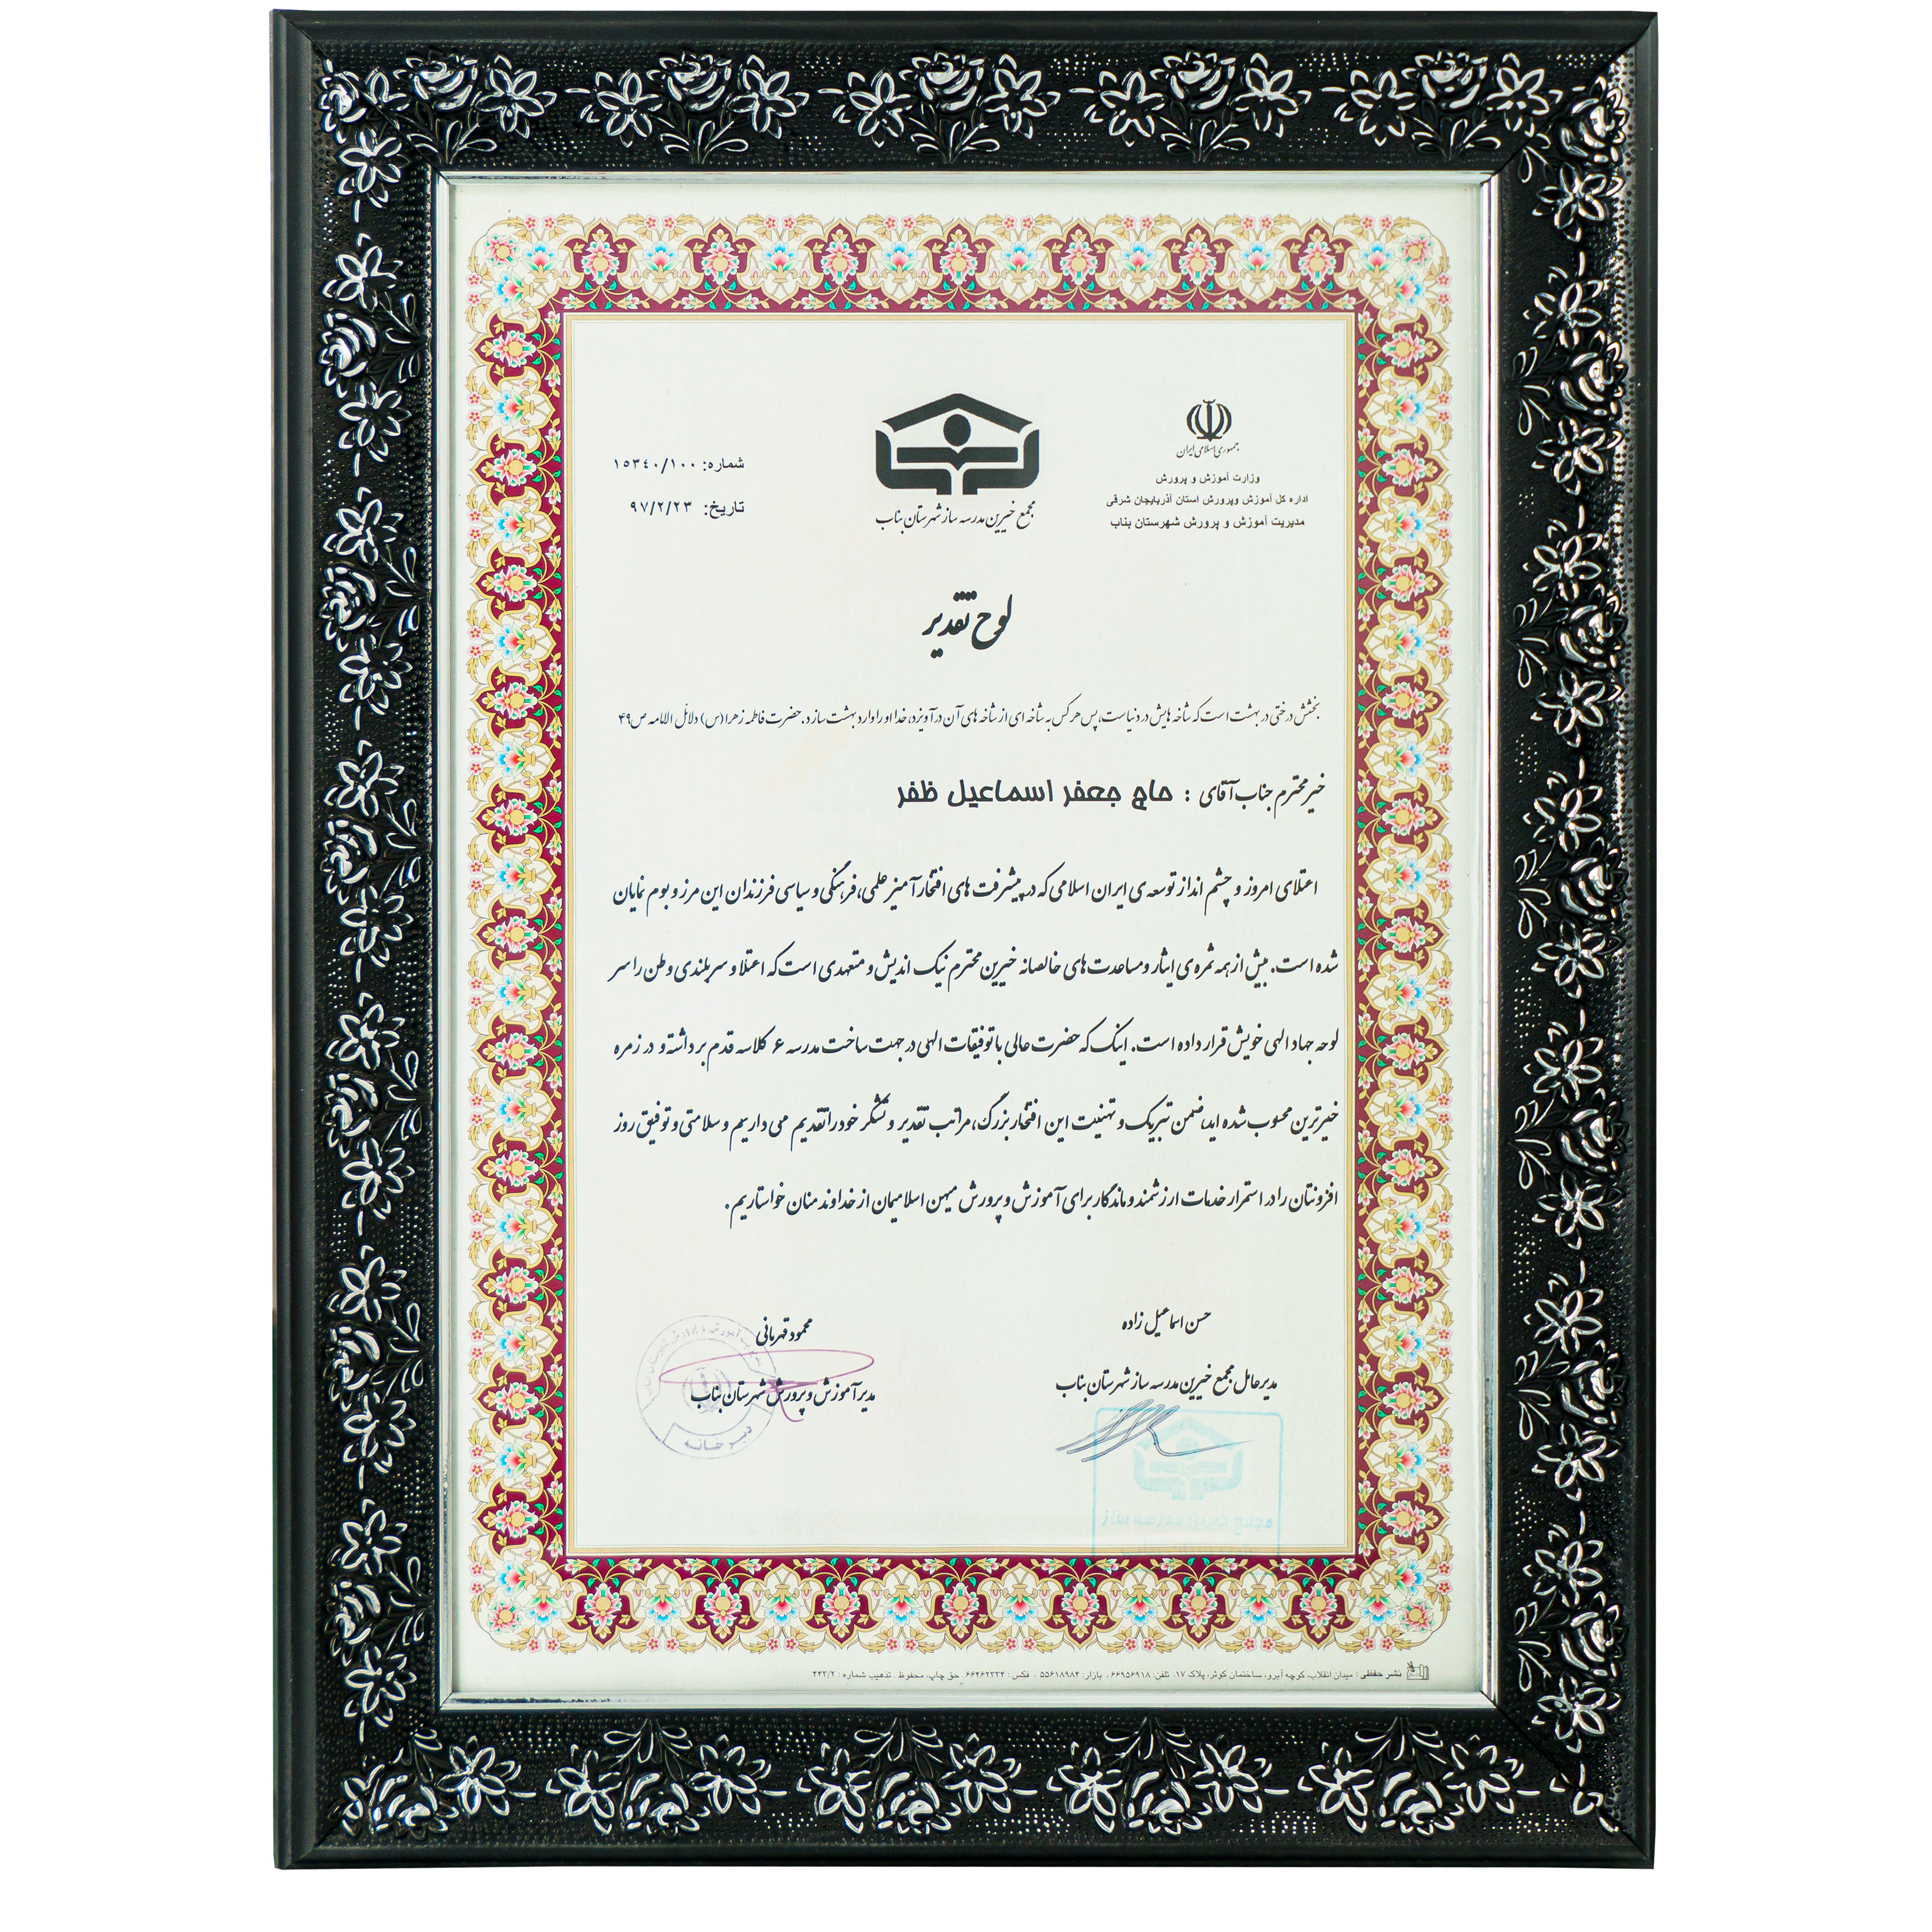 جمهوری اسلامی ایران
وزارت آموزش و پرورش
اداره کل آموزش وپرورش استان آذربایجان شرقی
مدیریت آموزش و پرورش شهرستان بناب
مجمع خیرین مدرسه ساز شهرستان بناب
شماره: ۱۵۳۴۰/۱۰۰
تاریخ: ۹۷/۲/۲۳
لوح تقدیر
بخشش درختی در بهشت است که شاخه هایش در دنیاست، پس هر کس به شاخه ای از شاخه های آن درآویزد، خدا او را وارد بهشت سازد. حضرت فاطمه زهرا (س) دلائل الامامه ص۴۹
خیر محترم جناب آقای : حاج جعفر اسماعیل ظفر
اعتلای امروز و چشم انداز توسعه ی ایران اسلامی که در پیشرفت های افتخار آمیز علمی، فرهنگی و سیاسی فرزندان این مرز و بوم نمایان
شده است. بیش از همه ثمره ی ایثار و مساعدت های خالصانه خیرین محترم نیک اندیش و متعهدی است که اعتلا و سربلندی وطن را سر
لوحه جهاد الهی خویش قرار داده است. اینک که حضرت عالی با توفیقات الهی در جهت ساخت مدرسه ۶ کلاسه قدم برداشته و در زمره
خیرترین محسوب شده اید، ضمن تبریک و تهنیت این افتخار بزرگ، مراتب تقدیر و تشکر خود را تقدیم می داریم و سلامتی و توفیق روز
افزونتان را در استمرار خدمات ارزشمند و ماندگار برای آموزش و پرورش میهن اسلامیمان از خداوند منان خواستاریم.
حسن اسماعیل زاده
مدیرعامل مجمع خیرین مدرسه ساز شهرستان بناب
محمود قهرمانی
مدیر آموزش و پرورش شهرستان بناب
دبیرخانه
نشر حفظی : میدان انقلاب، کوچه آبرو، ساختمان کوثر، پلاک ۱۷. تلفن: ۶۶۹۵۶۹۱۸ ، بازار: ۵۵۶۱۸۹۸۴ ، فکس : ۶۶۴۶۲۳۳۴ . حق چاپ، محفوظ . تذهیب شماره : ۴۴۳/۲